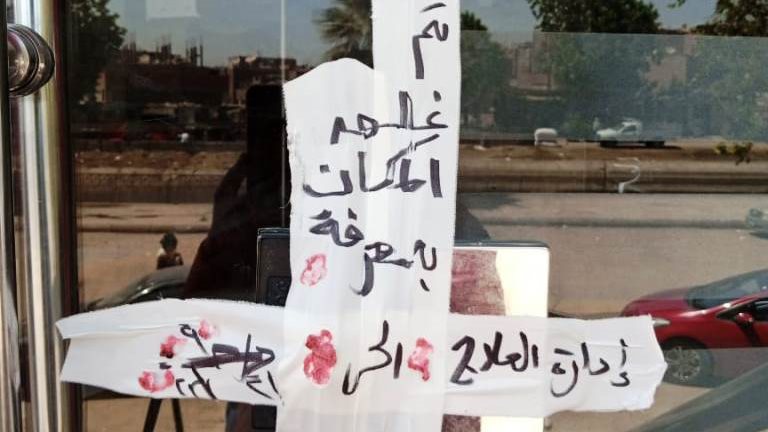 تم
غلق
المكان
بمعرفة
إدارة العلاج الحر